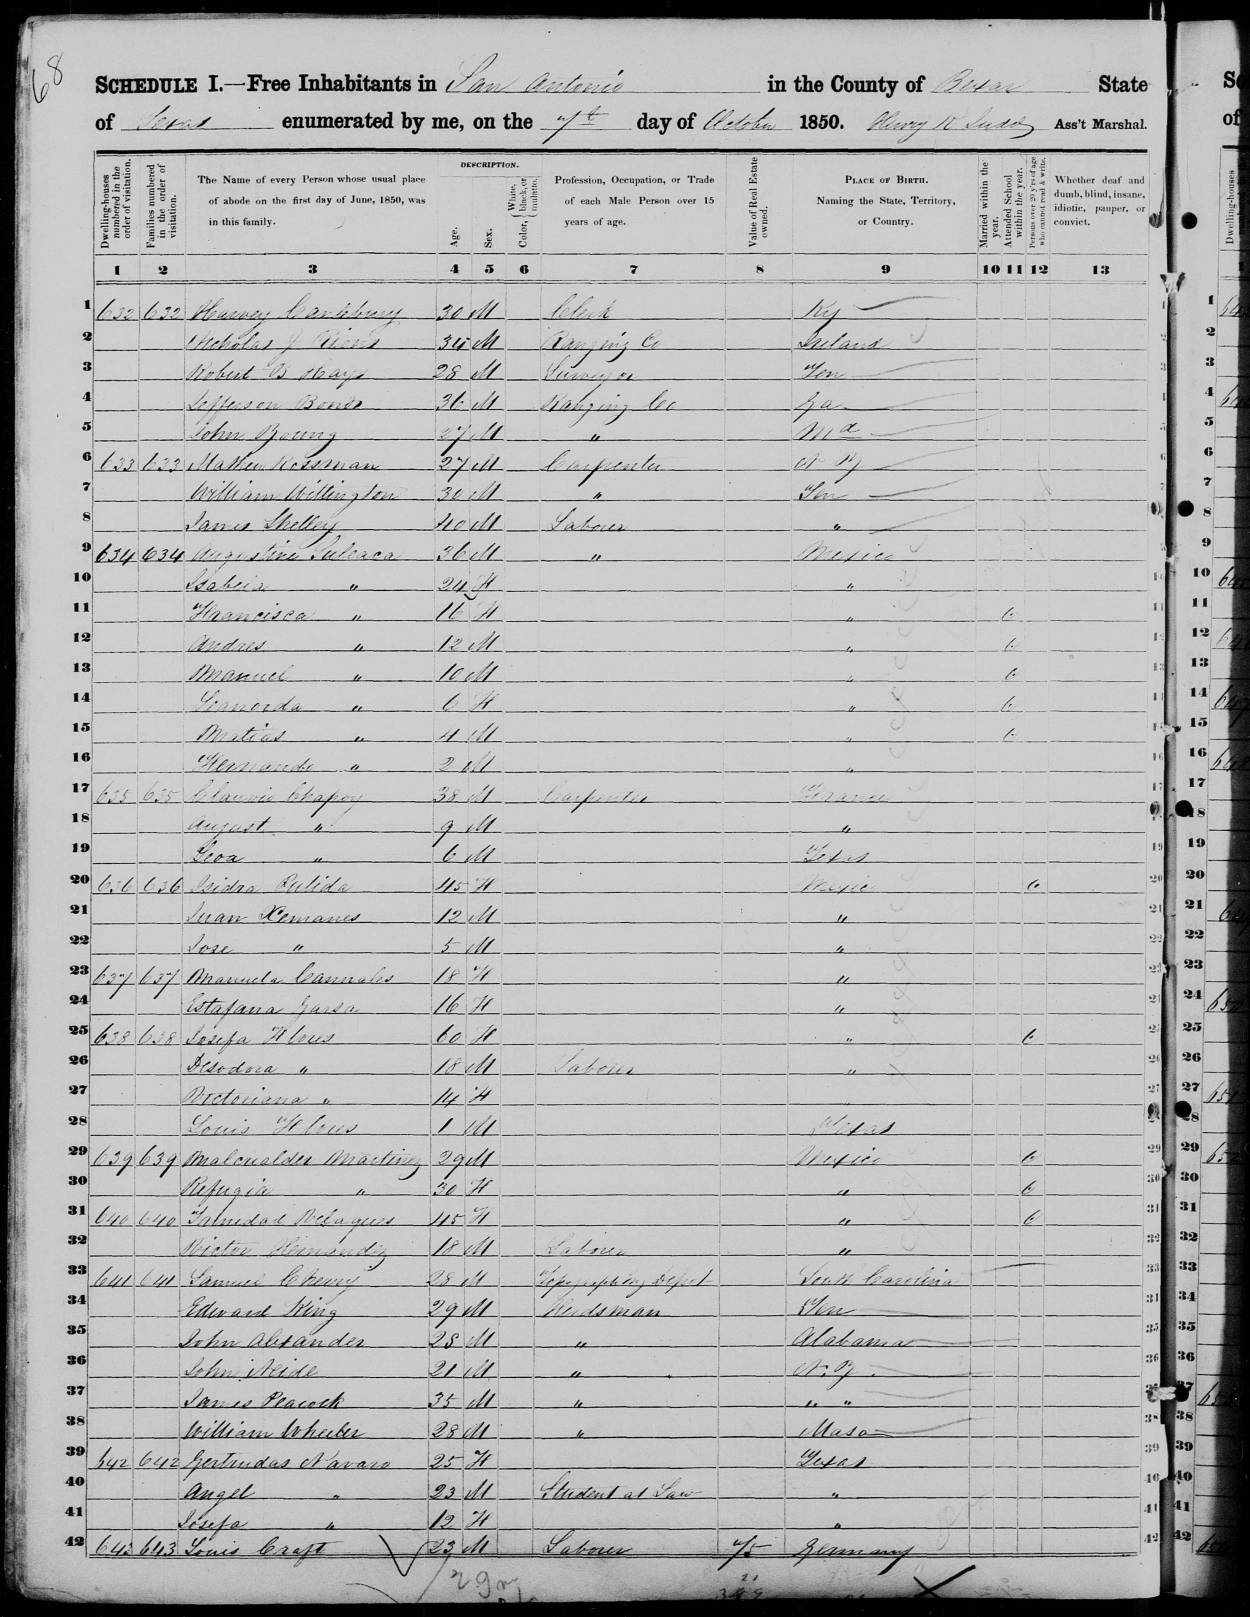 68
SCHEDULE I.—Free Inhabitants in San Antonio in the County of Bexar State
of Texas enumerated by me, on the 7th day of October 1850. Henry K Ass't Marshal.
DESCRIPTION.
Dwelling-houses numbered in the order of visitation.
Families numbered in the order of visitation.
The Name of every Person whose usual place of abode on the first day of June, 1850, was in this family.
Age.
Sex.
Color, { White, black, or mulatto.
Profession, Occupation, or Trade of each Male Person over 15 years of age.
Value of Real Estate owned.
PLACE OF BIRTH. Naming the State, Territory, or Country.
Married within the year.
Attended School within the year.
Persons over 20 y'rs of age who cannot read & write.
Whether deaf and dumb, blind, insane, idiotic, pauper, or convict.
1 2 3 4 5 6 7 8 9 10 11 12 13
1 632 632 Harvey Canterbury 30 M Clerk Ky
2 Nicholas J 34 M Ranging Co Ireland
3 Robert B Hays 28 M Surveyor Ten
4 Jefferson Bonds 36 M Ranging Co Ga
5 John Young 27 M " Md
6 633 633 Mathew Rossman 27 M Carpenter N Y
7 William Wittington 30 M " Ten
8 James Shelley 40 M Laborer "
9 634 634 Augustine 36 M " Mexico
10 Isabela " 24 F "
11 Francisca " 16 F "
12 Andres " 12 M "
13 Manuel " 10 M "
14 " 6 F "
15 Matias " 4 M "
16 Fernando " 2 M "
17 635 635 Chapoy 38 M Carpenter France
18 August " 9 M "
19 " 6 M Texas
20 636 636 Isidra Pulida 45 F Mexico
21 Juan Xemanes 12 M "
22 Jose " 5 M "
23 637 637 Manuela Cannales 18 F "
24 Estafana Garsa 16 F "
25 638 638 Josefa Flores 60 F "
26 Desodora " 18 M Laborer "
27 Victoriana " 14 F
28 Louis Flores 1 M Texas
29 639 639 Martinez 29 M Mexico
30 Refugia " 30 F "
31 640 640 Trinidad Velaques 45 F "
32 Victor Hernandez 18 M Laborer "
33 641 641 Samuel Cherry 28 M Topographing Depot South Carolina
34 Edward King 29 M Herdsman Ten
35 John Alexander 28 M " Alabama
36 John Neide 21 M " N. Y.
37 James Peacock 35 M " " "
38 William Wheeler 28 M " Mass
39 642 642 Gertrudas Navaro 25 F Texas
40 Angel " 23 M Student at Law "
41 Josefa " 12 F "
42 643 643 Louis Craft 23 M Laborer 75 Germany
29 m